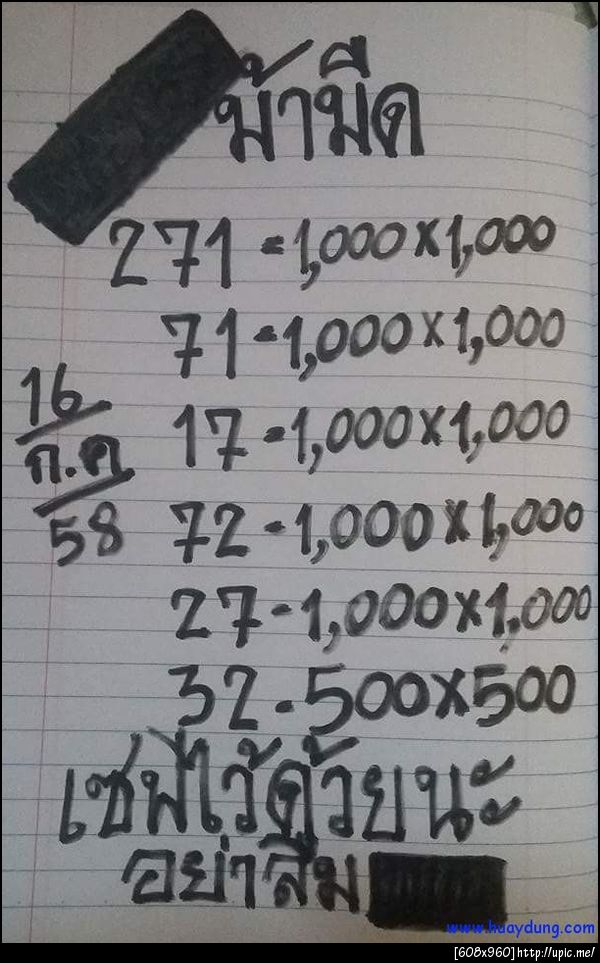 ม้ามืด
271 = 1,000 x 1,000
71 = 1,000 x 1,000
16
ก.ค
58
17 = 1,000 x 1,000
72 - 1,000 x 1,000
27 - 1,000 x 1,000
32 - 500 x 500
เซฟไว้ด้วยนะ
อย่าลืม
www.huaydung.com
[608x960]http://upic.me/